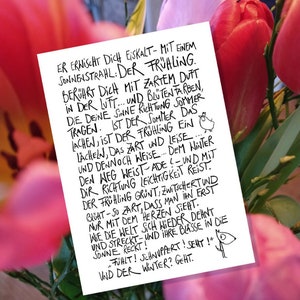 ER ERWISCHT DICH EISKALT - MIT EINEM
SONNENSTRAHL: DER FRÜHLING.
BERÜHRT DICH MIT ZARTEM DUFT
IN DER LUFT... UND BLÜTENFARBEN,
DIE DEINE SINNE RICHTUNG SOMMER
TRAGEN. IST DER SOMMER DAS
LACHEN, IST DER FRÜHLING EIN
LÄCHELN, DAS ZART UND LEISE...
UND DENNOCH WEISE... DEM WINTER
DEN WEG WEIST - ADE! - UND MIT
DIR RICHTUNG LEICHTIGKEIT REIST.
DER FRÜHLING GRÜNT, ZWITSCHERT UND
- SO ZART, DASS MAN IHN ERST
NUR MIT DEM HERZEN SIEHT.
WIE DIE WELT SICH WIEDER DEHNT
UND STRECKT - UND IHRE BLÄSSE IN DIE
SONNE RECKT!
"FÜHLT! SCHNUPPERT! SEHT!"
UND DER WINTER? GEHT.